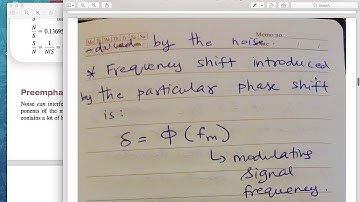 S
N
0.13695
N
S
S
N
1
N/S
Preempha
Noise can interfe
ponents of the m
contains a lot of h
Memo no.
educed by the noise.
* Frequency shift introduced
by the particular phase shift
is:
δ = Φ (fm)
↳ modulating
signal
frequency.